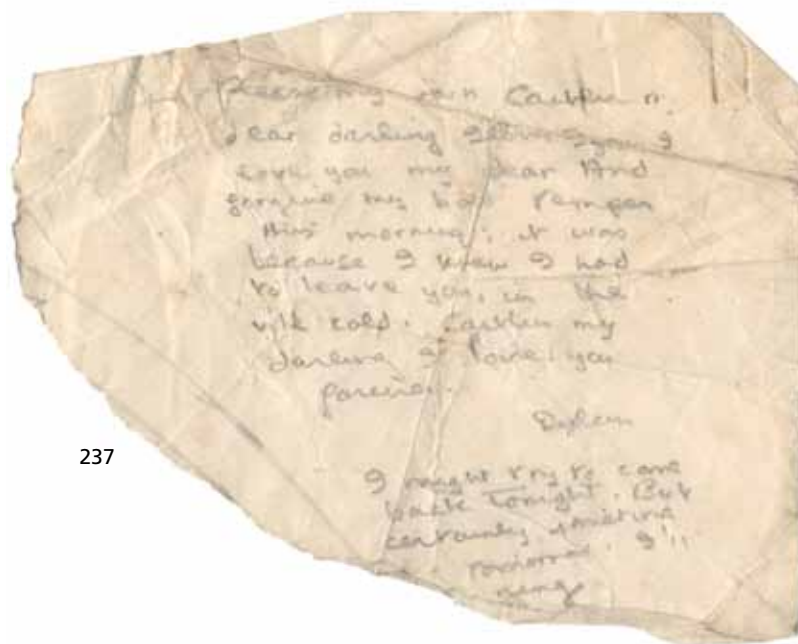 my own Caitlin
dear darling I love you I
love you my dear And
forgive my bad temper
this morning; it was
because I knew I had
to leave you, in the
vile cold. Caitlin my
darling I love you
forever.
Dylan
I might try to come
back tonight. But
certainly
tomorrow. I'll
ring
237